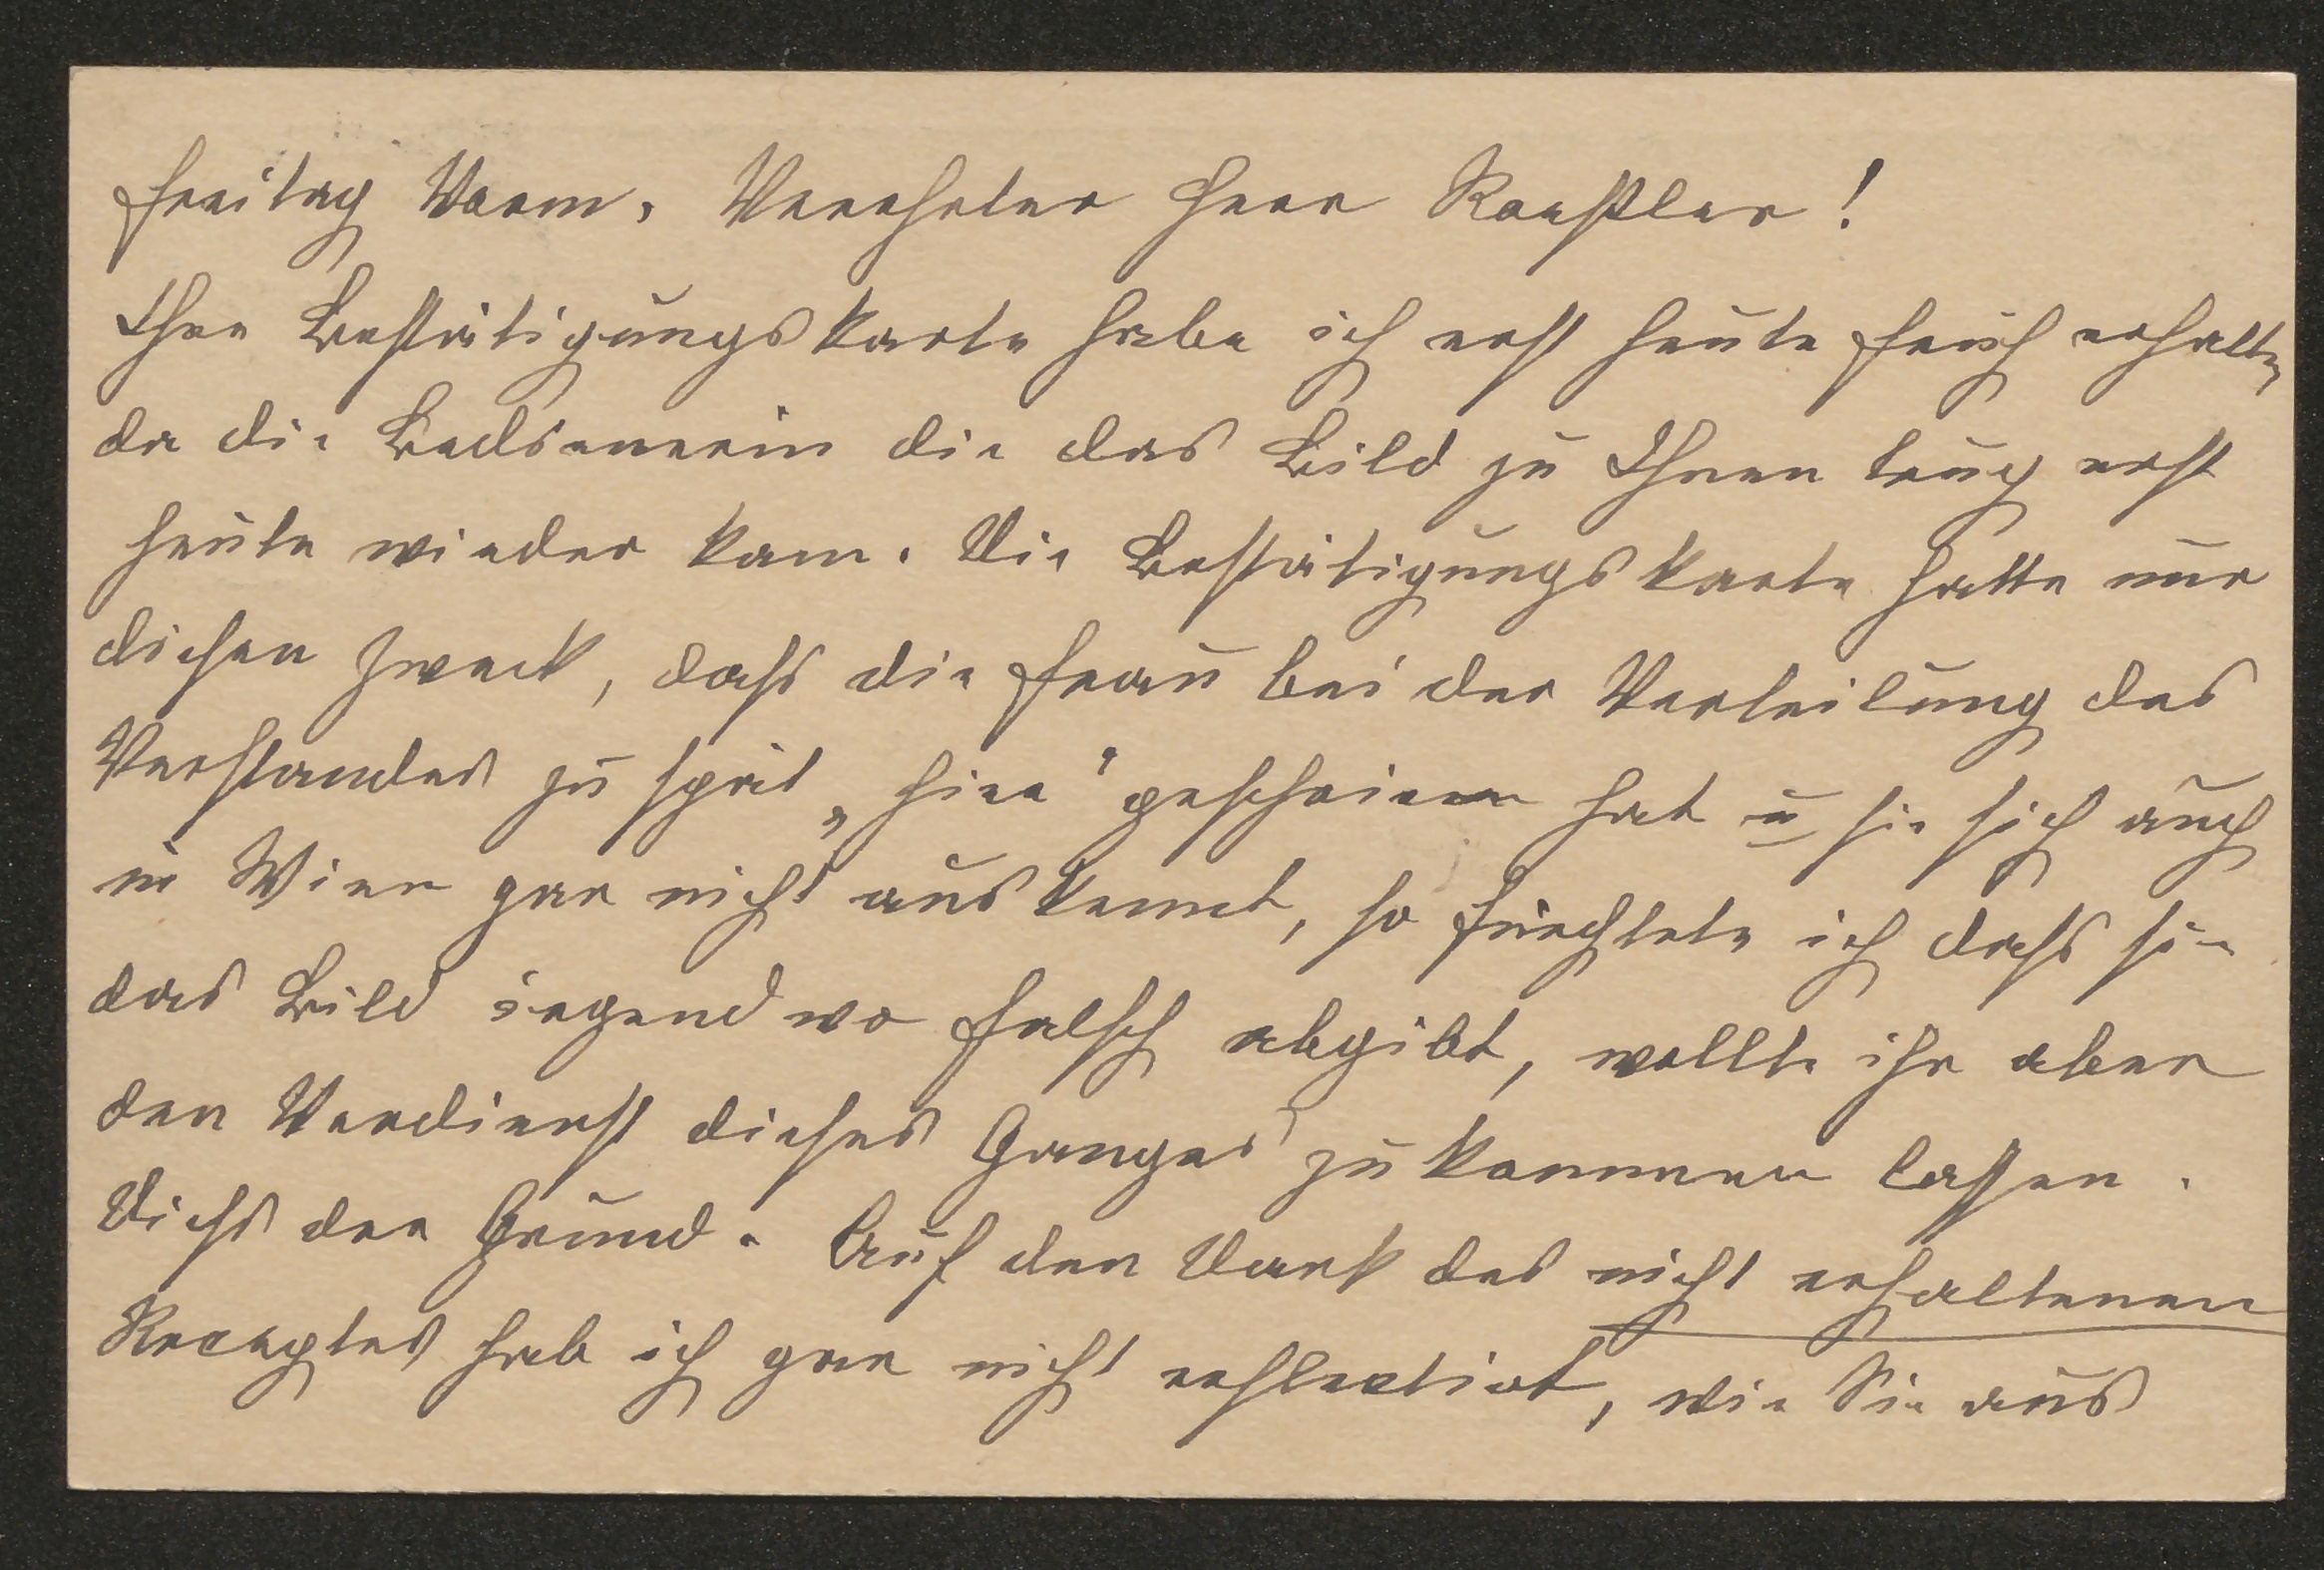 Freitag Vorm. Verehrter Herr Roessler!
Ihre Bestätigungskarte habe ich erst heute früh erhalten
da die Bedienerin die das Bild zu Ihnen trug erst
heute wieder kam. Die Bestätigungskarte hatte nur
diesen Zweck, dass die Frau bei der Verteilung des
Verstandes zu spät „hier" geschrieen hat u sie sich auch
in Wien gar nicht auskennt, so fürchtete ich dass sie
das Bild irgendwo falsch abgibt, wollte ihr aber
den Verdienst dieses Ganges zukommen lassen.
Dies der Grund. Auf den Dank des nicht erhaltenen
Receptes hab ich gar nicht reflectirt, wie Sie aus